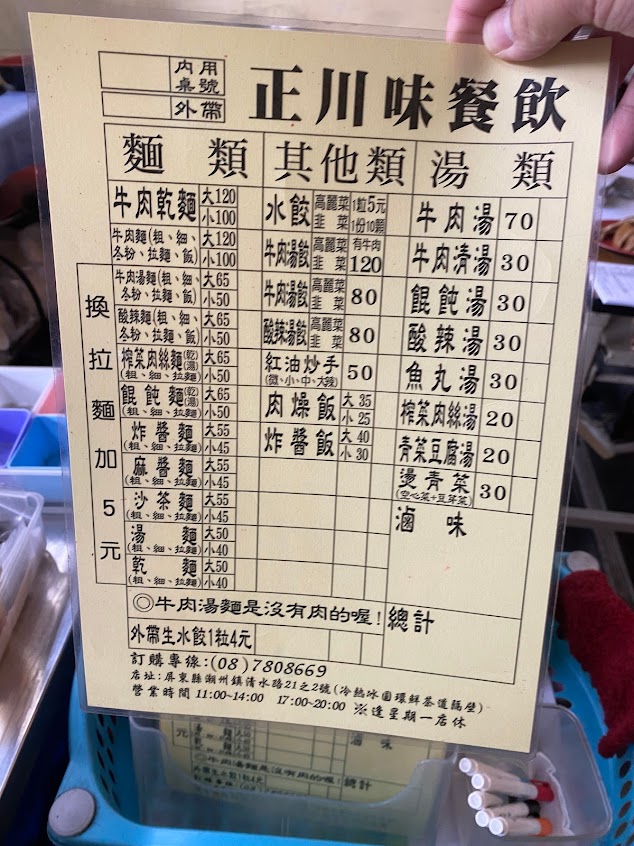 內用
桌號
外帶
正川味餐飲
麵類
牛肉乾麵 大120 小100
牛肉麵(粗、細、冬粉、拉麵、飯) 大120 小100
換拉麵加5元
牛肉湯麵(粗、細、冬粉、拉麵、飯) 大65 小50
酸辣麵(粗、細、冬粉、拉麵、飯) 大65 小50
榨菜肉絲麵(乾)(湯) (粗、細、拉麵) 大65 小50
餛飩麵(乾)(湯) (粗、細、拉麵) 大65 小50
炸醬麵 (粗、細、拉麵) 大55 小45
麻醬麵 (粗、細、拉麵) 大55 小45
沙茶麵 (粗、細、拉麵) 大55 小45
湯麵 (粗、細、拉麵) 大50 小40
乾麵 (粗、細、拉麵) 大50 小40
其他類
水餃 高麗菜 韭菜 1粒5元 1份10顆
牛肉湯餃 高麗菜 韭菜 有牛肉 120
牛肉湯餃 高麗菜 韭菜 80
酸辣湯餃 高麗菜 韭菜 80
紅油炒手 (微、小、中、大辣) 50
肉燥飯 大35 小25
炸醬飯 大40 小30
湯類
牛肉湯 70
牛肉清湯 30
餛飩湯 30
酸辣湯 30
魚丸湯 30
榨菜肉絲湯 20
青菜豆腐湯 20
燙青菜 (空心菜+豆芽菜) 30
滷味
◎牛肉湯麵是沒有肉的喔!
總計
外帶生水餃1粒4元
訂購專線:(08)7808669
店址:屏東縣潮州鎮清水路21之2號(冷熱冰園環鮮茶道隔壁)
營業時間 11:00~14:00 17:00~20:00 ※逢星期一店休
滷味
◎牛肉湯麵是沒有肉的喔!
總計
外帶生水餃1粒4元